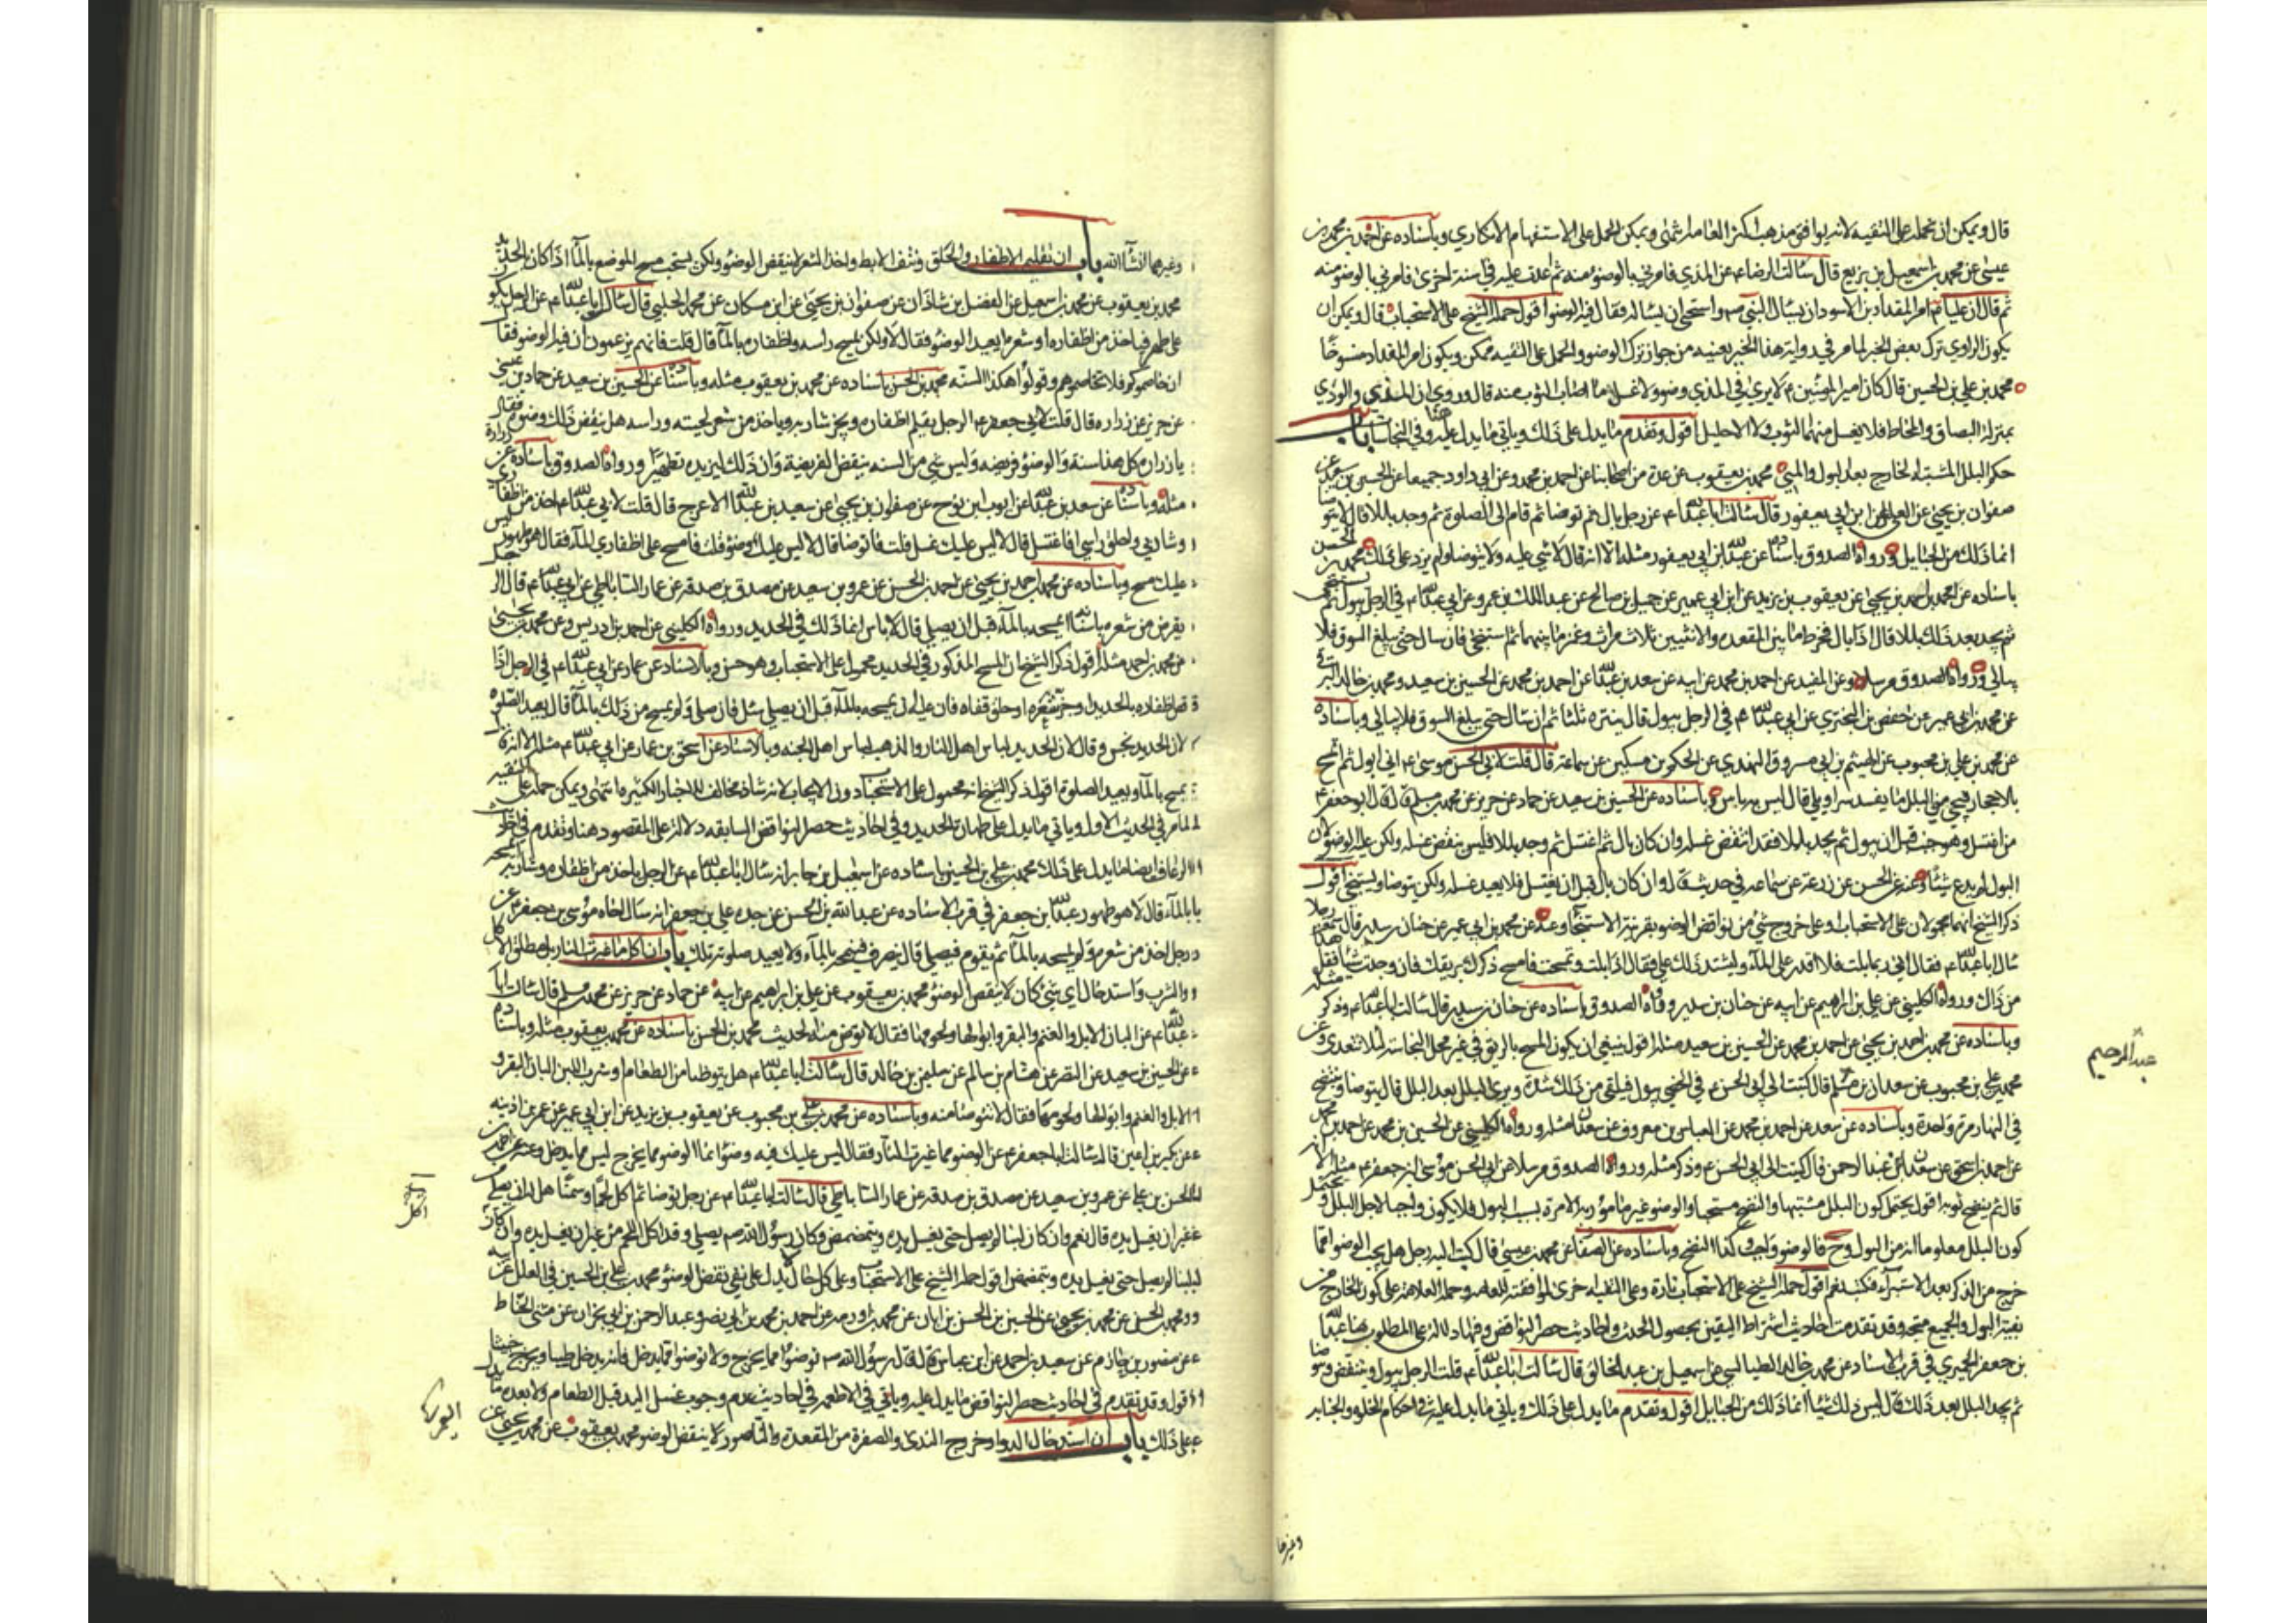 قال ويمكن ان نحمله على التقيه لانه يوافق مذهب اكثر العامه انتهى ويمكن الحمل على الاستفهام الانكاري وباسناده عن احمد بن محمد بن
عيسى عن محمد بن اسمعيل بن بزيع قال سالت الرضا ع عن المذي فامرني بالوضوء منه ثم اعدت عليه في سنة اخرى فامرني بالوضوء منه
ثم قال ان عليا ع امر المقداد بن الاسود ان يسال النبي ص واستحيى ان يساله فقال فيه الوضوء اقول حمله الشيخ على الاستحباب قال ويمكن ان
يكون الراوي ترك بعض الخبر لما مر في رواية هذا الخبر بعينه من جواز ترك الوضوء والحمل على التقيه ممكن ويكون امر المقداد منسوخا
محمد بن علي بن الحسين قال كان امير المؤمنين ع لا يرى في المذي وضوء ولا غسل ما اصاب الثوب منه قال وروي ان المذي والودي
بمنزله البصاق والمخاط فلا يغسل منهما الثوب ولا الاحليل اقول وتقدم ما يدل على ذلك وياتي ما يدل عليه هنا وفي النجاسات باب
حكم البلل المشتبه الخارج بعد البول والمني محمد بن يعقوب عن عدة من اصحابنا عن احمد بن محمد وعن ابي داود جميعا عن الحسين بن سعيد عن
صفوان بن يحيى عن العلا عن ابن ابي يعفور قال سالت ابا عبدالله ع عن رجل بال ثم توضا ثم قام الى الصلوة ثم وجد بللا قال لا يتوضا
انما ذلك من الحبايل ورواه الصدوق باسناده عن عبدالله بن ابي يعفور مثله الا انه قال لا شي عليه ولا يتوضا ولم يزد على ذلك محمد بن الحسن
باسناده عن محمد بن احمد بن يحيى عن يعقوب بن يزيد عن ابن ابي عمير عن جميل بن صالح عن عبد الملك بن عمرو عن ابي عبدالله ع في الرجل يبول ثم يستنجي
ثم يجد بعد ذلك بللا قال اذا بال فخرط ما بين المقعده والانثيين ثلاث مرات وغمز ما بينهما ثم استنجى فان سال حتى يبلغ السوق فلا
يبالي ورواه الصدوق مرسلا وعن المفيد عن احمد بن محمد عن ابيه عن سعد بن عبدالله عن احمد بن محمد عن الحسين بن سعيد ومحمد بن خالد البرقي
عن محمد بن ابي عمير عن حفص بن البختري عن ابي عبدالله ع في الرجل يبول قال ينتره ثلثا ثم ان سال حتى يبلغ السوق فلا يبالي وباسناده
عن محمد بن علي بن محبوب عن الهيثم بن ابي مسروق النهدي عن الحكم بن مسكين عن سماعة قال قلت لابي الحسن موسى ع اني ابول ثم اتمسح
بالاحجار فيجي مني البلل ما يفسد سراويلي قال ليس به باس وباسناده عن الحسين بن سعيد عن حماد عن حريز عن محمد بن مسلم قال قال ابو جعفر ع
من اغتسل وهو جنب قبل ان يبول ثم يجد بللا فقد انتقض غسله وان كان بال ثم اغتسل ثم وجد بللا فليس ينقض غسله ولكن عليه الوضوء لان
البول لم يدع شيئا وعنه عن الحسن عن زرعة عن سماعه في حديث قال وان كان بال قبل ان يغتسل فلا يعيد غسله ولكن يتوضا ويستنجي اقول
ذكر الشيخ انهما محمولان على الاستحباب او على خروج شيء من نواقض الوضوء بقرينة الاستنجاء وعنه عن محمد بن ابي عمير عن حنان بن سدير قال سمعت رجلا
سال ابا عبدالله ع فقال اني ربما بلت فلا اقدر على الماء ويشتد ذلك علي فقال اذا بلت وتمسحت فامسح ذكرك بريقك فان وجدت شيئا فقل هذا
من ذاك ورواه الكليني عن علي بن ابراهيم عن ابيه عن حنان بن سدير ورواه الصدوق باسناده عن حنان بن سدير قال سالت ابا عبدالله ع وذكر مثله
وباسناده عن محمد بن احمد بن يحيى عن احمد بن محمد عن الحسين بن سعيد مثله اقول ينبغي ان يكون المسح بالريق في غير محل النجاسة لئلا تتعدى وعن
محمد بن علي بن محبوب عن سعدان بن مسلم قال كتبت الى ابي الحسن ع في الخصي يبول فيلقى من ذلك شدة ويرى البلل بعد البلل قال يتوضا وينتضح
في النهار مرة واحدة وباسناده عن سعد عن احمد بن محمد عن العباس بن معروف عن سعدان مثله ورواه الكليني عن الحسين بن محمد عن احمد بن محمد
عن احمد بن اسحق عن سعدان عن عبد الرحمن قال كتبت الى ابي الحسن ع وذكر مثله ورواه الصدوق مرسلا عن ابي الحسن موسى بن جعفر ع مثله الا انه
قال ثم ينضح ثوبه اقول يحتمل كون البلل مشتبها والنضح مستحبا والوضوء غير مامور به الا مرة بسبب البول فلا يكون واجبا لاجل البلل ويحتمل
كون البلل معلوما انه من البول وح فالوضوء واجب وكذا النضح وباسناده عن الصفار عن محمد بن عيسى قال كتب اليه رجل هل يجب الوضوء مما
خرج من الذكر بعد الاستبراء فكتب نعم اقول حمله الشيخ على الاستحباب تارة وعلى التقيه اخرى لموافقته للعامه وحمله العلامه على كون الخارج من
بقية البول والجميع متجه وقد تقدمت احاديث اشتراط اليقين بحصول الحدث واحاديث حصر النواقض وفيها دلالة على المطلوب هنا عبدالله
بن جعفر الحميري في قرب الاسناد عن محمد بن خالد الطيالسي عن اسمعيل بن عبد الخالق قال سالت ابا عبدالله ع قلت الرجل يبول وينتفض ويتوضا
ثم يجد البلل بعد ذلك قال ليس ذلك شيئا انما ذلك من الحبايل اقول وتقدم ما يدل على ذلك وياتي ما يدل عليه في احكام الخلوه والجنابه
عبد الرحيم
وغيرهما
وغيرهما انشاالله باب ان تقليم الاظفار والحلق ونتف الابط واخذ الشعر لا ينقض الوضوء ولكن يستحب مسح الموضع بالماء اذا كان الحديد
محمد بن يعقوب عن محمد بن اسمعيل عن الفضل بن شاذان عن صفوان بن يحيى عن ابن مسكان عن محمد الحلبي قال سالت ابا عبدالله ع عن الرجل يكون
على طهر فياخذ من اظفاره او شعره ايعيد الوضوء فقال لا ولكن يمسح راسه واظفاره بالماء قال قلت فانهم يزعمون ان فيه الوضوء فقال
ان خاصموكم فلا تخاصموهم وقولوا هكذا السنه محمد بن الحسن باسناده عن محمد بن يعقوب مثله وباسناده عن الحسين بن سعيد عن حماد بن عيسى
عن حريز عن زراره قال قلت لابي جعفر ع الرجل يقلم اظفاره ويجز شاربه وياخذ من شعر لحيته وراسه هل ينقض ذلك وضوءه فقال
يا زراره كل هذا سنة والوضوء فريضه وليس شي من السنه ينقض الفريضة وان ذلك ليزيده تطهيرا ورواه الصدوق باسناده عن زرارة
مثله وباسناده عن سعد بن عبدالله عن ايوب بن نوح عن صفوان بن يحيى عن سعيد بن عبدالله الاعرج قال قلت لابي عبدالله ع اخذ من اظفاري
وشاربي واحلق راسي افاغتسل قال لا ليس عليك غسل قلت فاتوضا قال لا ليس عليك وضوء قلت فامسح على اظفاري الماء فقال هو طهور ليس
عليك مسح وباسناده عن محمد بن احمد بن يحيى عن احمد بن الحسن عن عمرو بن سعيد عن مصدق بن صدقه عن عمار الساباطي عن ابي عبدالله ع قال الرجل
يقرض من شعره باسنانه ايمسحه بالماء قبل ان يصلي قال لا باس انما ذلك في الحديد ورواه الكليني عن احمد بن ادريس وعن محمد بن يحيى
عن محمد بن احمد مثله اقول ذكر الشيخ ان المسح المذكور في الحديد محمول على الاستحباب وهو حسن وبالاسناد عن عمار عن ابي عبدالله ع في الرجل اذا
قص اظفاره بالحديد او جز شعره او حلق قفاه فان عليه ان يمسحه بالماء قبل ان يصلي سئل فان صلى ولم يمسح من ذلك بالماء قال يعيد الصلوة
لان الحديد نجس وقال لان الحديد لباس اهل النار والذهب لباس اهل الجنه وبالاسناد عن اسحق بن عمار عن ابي عبدالله ع مثله الا انه قال
يمسح بالماء ويعيد الصلوة اقول ذكر الشيخ انه محمول على الاستحباب دون الايجاب لانه شاذ مخالف للاخبار الكثيره انتهى ويمكن حمله على التقيه
لما مر في الحديث الاول وياتي ما يدل على طهارة الحديد وفي احاديث حصر النواقض السابقه دلالة على المقصود هنا وتقدم في احاديث
الرعاف ايضا ما يدل على ذلك محمد بن علي بن الحسين باسناده عن اسمعيل بن جابر انه سال ابا عبدالله ع عن الرجل ياخذ من اظفاره وشاربه ايمسحه
بالماء قال لا هو طهور عبدالله بن جعفر في قرب الاسناد عن عبدالله بن الحسن عن جده علي بن جعفر انه سال اخاه موسى بن جعفر ع عن
رجل اخذ من شعره ولم يمسحه بالماء ثم يقوم فيصلي قال ينصرف فيمسحه بالماء ولا يعيد صلوته تلك باب ان اكل ما غيرت النار بل مطلق الاكل
والشرب واستدخال اي شي كان لا ينقض الوضوء محمد بن يعقوب عن علي بن ابراهيم عن ابيه عن حماد عن حريز عن محمد بن مسلم قال سالت ابا
عبدالله ع عن البان الابل والغنم والبقر وابوالها ولحومها فقال لا توض منه الحديث محمد بن الحسن باسناده عن محمد بن يعقوب مثله وباسناده
عن الحسين بن سعيد عن النضر عن هشام بن سالم عن سليمن بن خالد قال سالت ابا عبدالله ع هل يتوضا من الطعام او شرب اللبن البان البقر و
الابل والغنم وابوالها ولحومها فقال لا يتوضا منه وباسناده عن محمد بن علي بن محبوب عن يعقوب بن يزيد عن ابن ابي عمير عن عمر بن اذينه
عن بكير بن اعين قال سالت ابا جعفر ع عن الوضوء مما غيرت النار فقال ليس عليك فيه وضوء انما الوضوء مما يخرج ليس مما يدخل وعنه عن احمد بن
الحسن بن علي عن عمرو بن سعيد عن مصدق بن صدقه عن عمار الساباطي قال سالت ابا عبدالله ع عن رجل توضا ثم اكل لحما وسمنا هل له ان يصلي من
غير ان يغسل يده قال نعم وان كان لبنا لم يصل حتى يغسل يده ويتمضمض وكان رسول الله ص يصلي وقد اكل اللحم من غير ان يغسل يده وان كان
لبنا لم يصل حتى يغسل يده ويتمضمض اقول حمله الشيخ على الاستحباب وعلى كل حال يدل على نفي نقض الوضوء محمد بن علي بن الحسين في العلل عن ابيه
ومحمد بن الحسن عن محمد بن يحيى عن الحسين بن الحسن بن ابان عن محمد بن اورمه عن احمد بن محمد بن ابي نصر وعبد الرحمن بن ابي نجران عن مثنى الحناط
عن منصور بن حازم عن سعيد بن احمد عن ابن عباس قال قال رسول الله ص توضوا مما يخرج ولا توضوا مما يدخل فانه يدخل طيبا ويخرج خبيثا
اقول وقد تقدم في احاديث حصر النواقض ما يدل عليه وياتي في الاطعمه في احاديث عدم وجوب غسل اليد قبل الطعام ولا بعده ما يدل
على ذلك باب ان استدخال الدواء وخروج الندى والصفرة من المقعدة والناصور لا ينقض الوضوء محمد بن يعقوب عن محمد بن يحيى عن